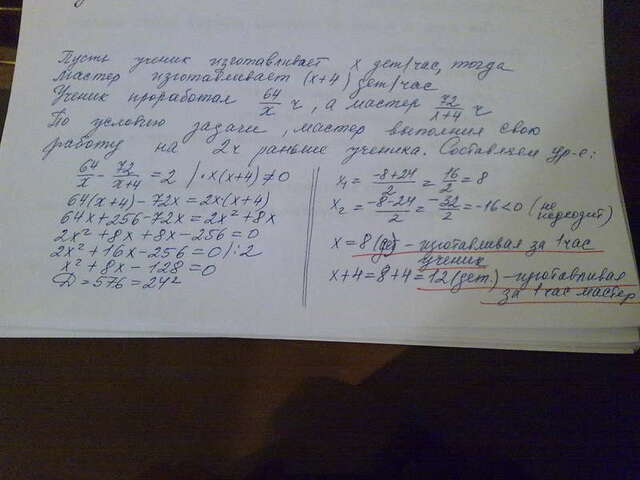 Пусть ученик изготавливает x дет/час, тогда
мастер изготавливает (x+4) дет/час
Ученик проработал 64/x ч, а мастер 72/x+4 ч
По условию задачи, мастер выполнил свою
работу на 2ч раньше ученика. Составляем ур-е:
64/x - 72/x+4 = 2 | · x(x+4) ≠ 0
64(x+4) - 72x = 2x(x+4)
64x + 256 - 72x = 2x² + 8x
2x² + 8x + 8x - 256 = 0
2x² + 16x - 256 = 0 | : 2
x² + 8x - 128 = 0
D = 576 = 24²
x₁ = -8+24/2 = 16/2 = 8
x₂ = -8-24/2 = -32/2 = -16 < 0 (не
подходит)
x = 8 (дет) - изготавливал за 1 час
ученик
x+4 = 8+4 = 12 (дет.) - изготавливал
за 1 час мастер